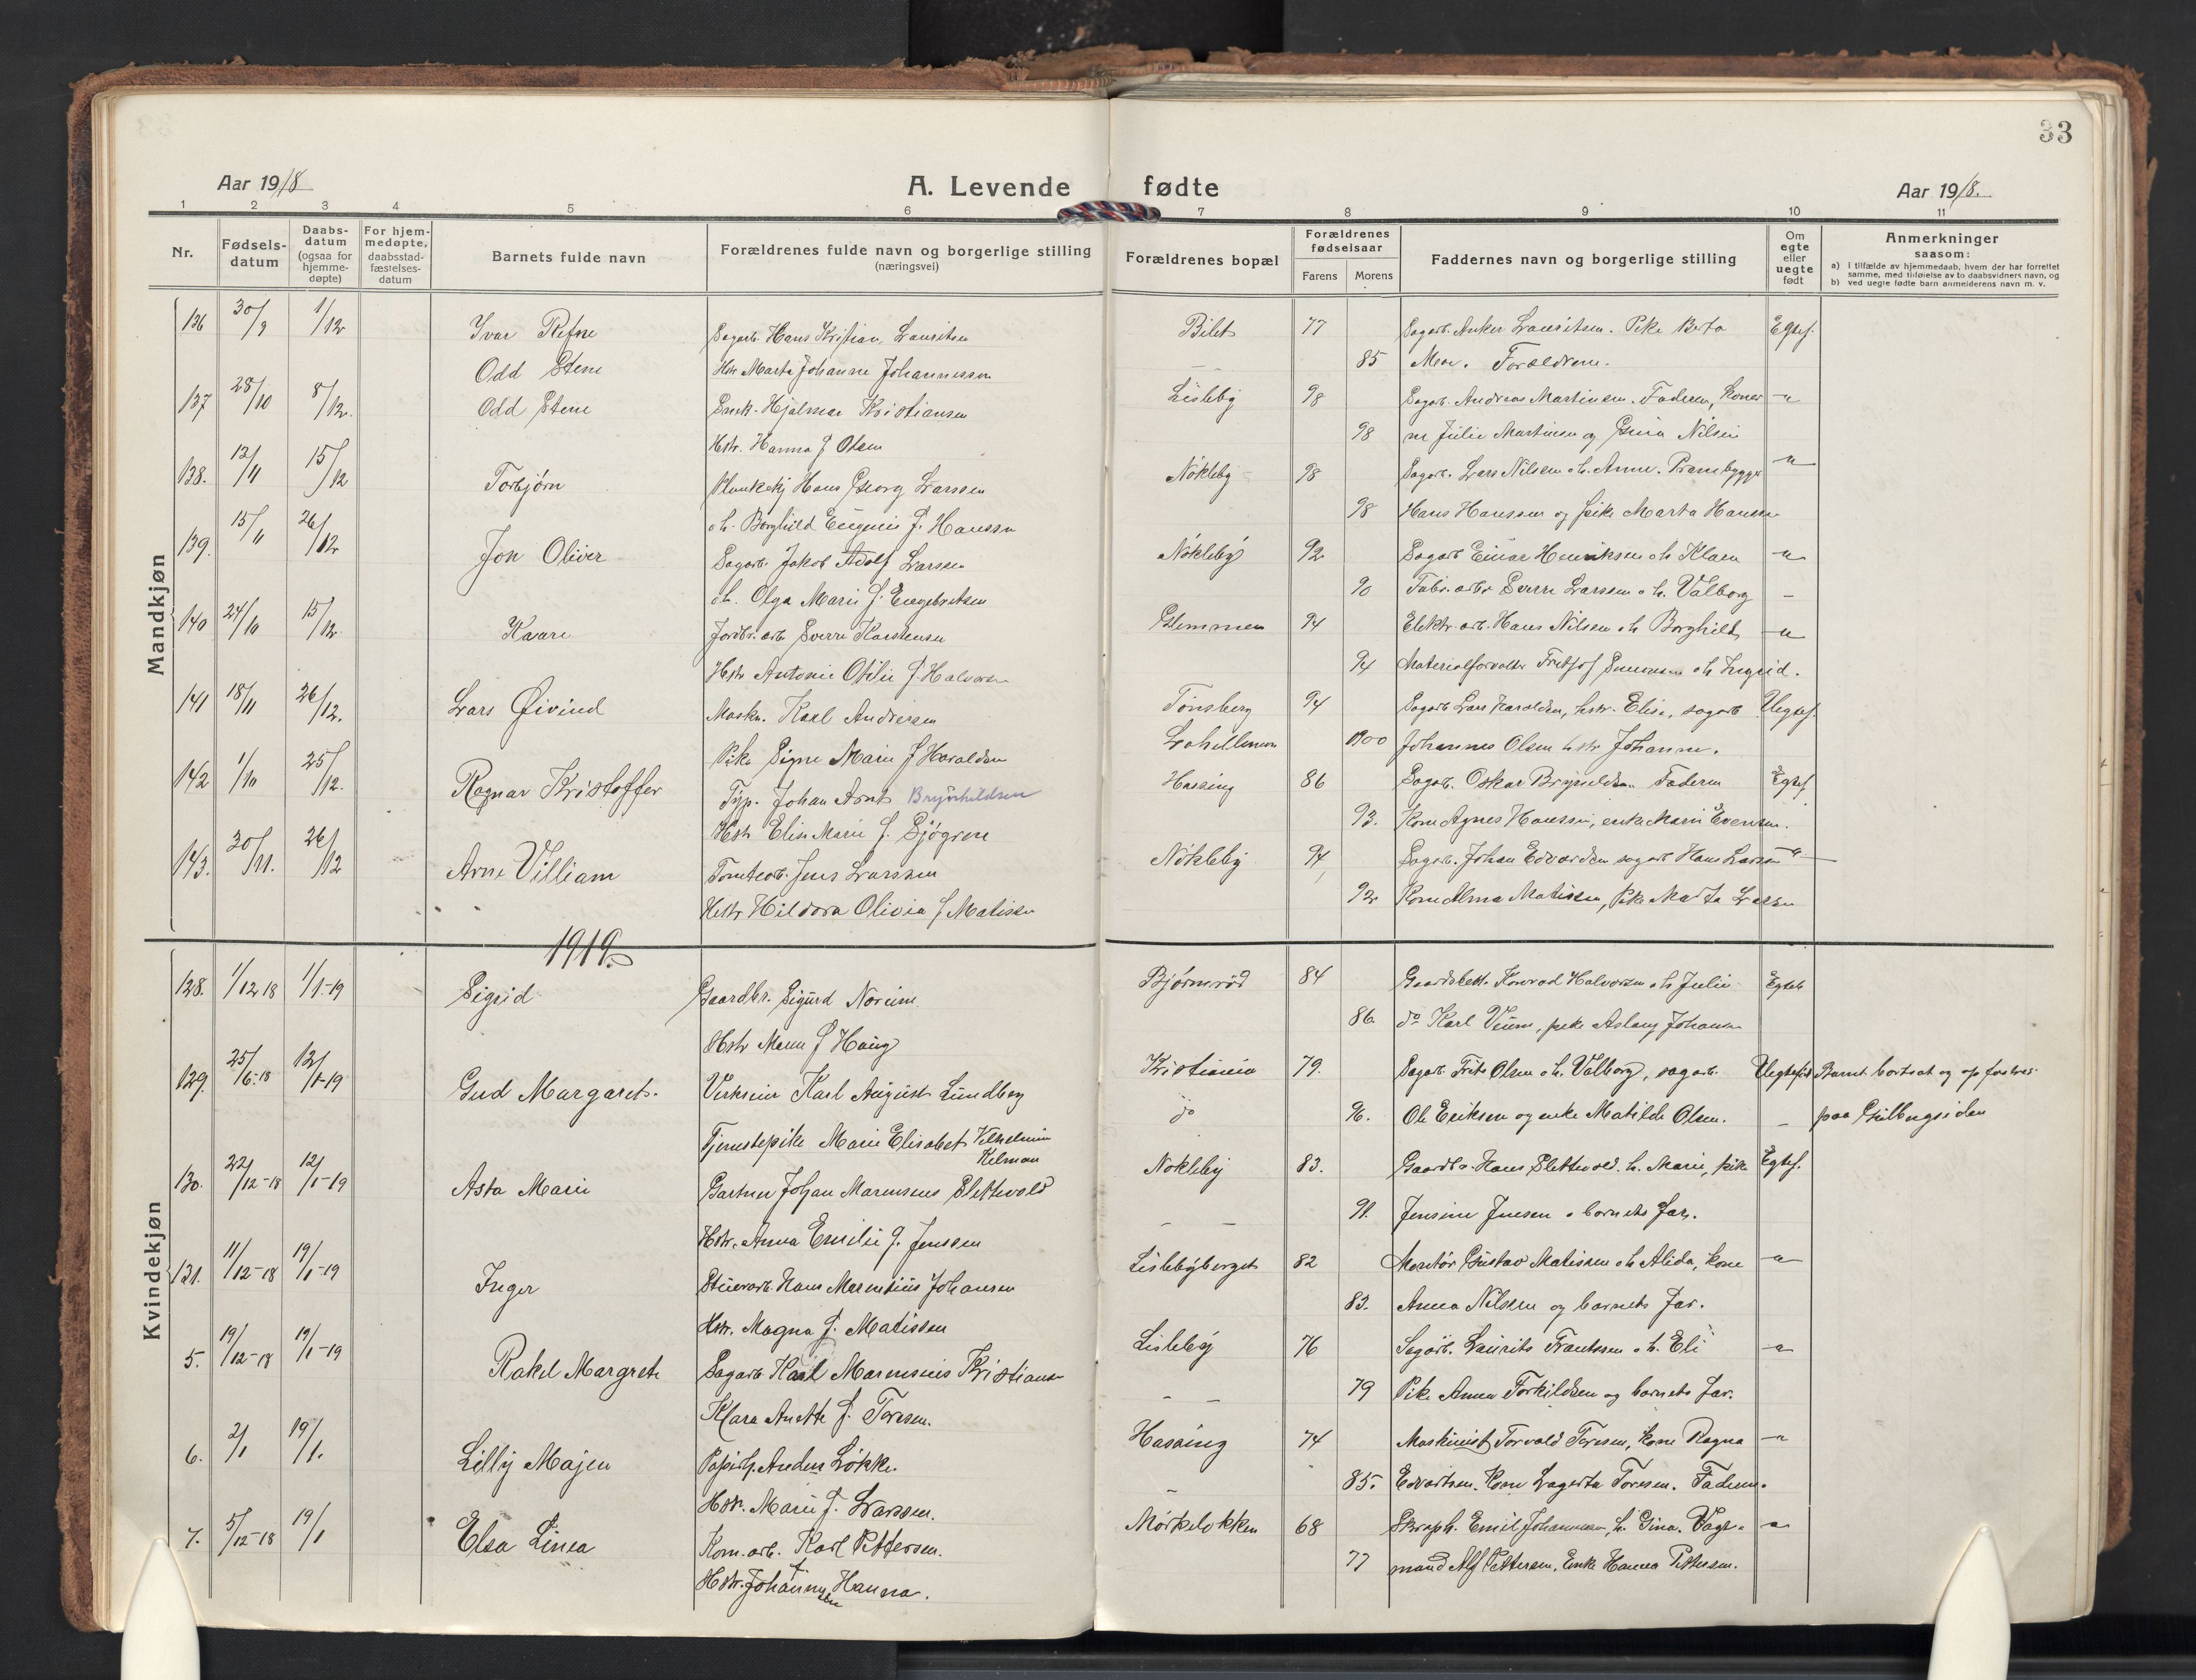 33
Aar 1918
A. Levende fødte
Aar 1918.
1 2 3 4 5 6 7 8 9 10 11
Nr.
Fødsels-
datum
Daabs-
datum
(ogsaa for
hjemme-
døpte)
For hjem-
medøpte,
daabsstad-
fæstelses-
datum
Barnets fulde navn
Forældrenes fulde navn og borgerlige stilling
(næringsvei)
Forældrenes bopæl
Forældrenes
fødselsaar
Farens Morens
Faddernes navn og borgerlige stilling
Om
egte
eller
uegte
født
Anmerkninger
saasom:
a) i tilfælde av hjemmedaab, hvem der har forrettet
samme, med tilføielse av to daabsvidners navn, og
b) ved uegte fødte barn anmelderens navn m. v.
Mandkjøn
136 30/9 1/12 Ivar Refne Sagarb. Hans Kristian Lauritsen Bilet 77 Sagarb. Anker Lauritsen. Pike Berta Egtef.
Odd Stene Hstr Marta Johanne Johannessen — 85 Moe. Forældrene.
137 28/10 8/12. Odd Stene Smed. Hjalmar Kristiansen Lisleby 98 Sagarb. Andreas Martinsen. Faderen, Koner -"-
Hstr. Hanna f Olsen 98 ne Julie Martinsen og Gina Nilsen
138. 12/11 15/12 Torbjørn Hans Georg Larssen Nøkleby 98 Sagarb. Lars Nilsen o h. Anne. Prambygger -"-
o h. Borghild Eugenie f. Hanssen 98 Hans Hanssen og pike Marta Hanssen
139. 15/11 26/12 Jon Oliver Sagarb. Jakob Adolf Larssen Nøkleby 92 Sagarb Einar Henriksen o h Klara -"-
o h. Olga Marie f. Engebretsen 90 Fabr. arb Sverre Larssen o h. Valborg —
140 24/10 15/12. Kaare Jordbr. arb Sverre Karstensen Glemmen 94 Elektr. arb. Hans Nilsen o h Borghild -"-
Hstr Antonie Otilie f. Halvorsen 94 Materialforvalter Fritjof Simensen o h Ingrid.
141 18/11 26/12. Lars Øivind Mask. Karl Andersen Tønsberg 94 Sagarb Lars Haraldsen, hstr. Elise, sagarb Uegtef.
Pike Signe Marie f Haraldsen Lahellmoen 1900 Johannes Olsen hstr Johanne.
142 1/10 25/12. Ragnar Kristoffer Typ. Johan Arnt Brynhildsen Hassing 86 Sagarb. Oskar Brynildsen. Faderen Egtef
Hstr Elise Marie f. Sjøgren 93. Kone Agnes Hanssen, enke Marie Evensen.
143. 20/11. 26/12 Arne Villiam Tomtearb. Jens Larssen Nøkleby 94 Sagarb. Johan Edvardsen sagarb Hans Larsen -"-
Hstr Hildora Olivia f Matisen 92 Kone Alma Matisen, Pike Marta Larsen
1919.
Kvindekjøn
128. 1/12 18 1/1-19 Sigrid Gaardbr. Sigurd Norum Bjørnerød 84 Gaardbest. Konrad Halvorsen o h Julie Egtef
Hstr f Haug 86. do Karl Veum, pike Aslaug Johansen
129. 25/6-18 12/1-19 Gud Margaret. Karl August Lundberg Kristiania 79. Sagarb. Frits Olsen o h. Valborg, sagarb. Uegtefød Barnet bortsat og opfostres
Tjenestepike Marie Elisabet Vilhelmine do 96. Ole Eriksen og enke Matilde Olsen. — paa
Kelman
130. 22/12-18 12/1-19 Asta Marie Gartner Johan Marensius Slettevold Nøkleby 83. Gaardb. Hans Slettevold. h. Marie, pike Egtef.
Hstr. Anna Emilie f. Jenssen — — 91. Jensine Jensen o barnets far.
131. 11/12-18 19/1-19 Inger Stuerarb. Hans Marentius Johansen Lislebyberget 82 Montør Gustav Matissen o h Alida, kone -"-
Hstr. Magna f. Matissen 83. Anna Nilsen og barnets far.
5. 19/12-18 19/1-19 Rakel Margrete Sagarb Karl Marensius Kristiansen Lisleby 76 Sagarb. Laurits Frantssen o h. Eli -"-
Klara Anette f. Toresen. — — 79 Pike Anna Torkildsen og barnets far.
6. 2/1 19/1. Lilly Majen Papirf. Anders Løkke. Hassing 74 Maskinist Torvald Toresen, kone Ragna -"-
Hstr. Marie f. Larssen. — 85. Edvartsen. Kone Lagerta Toresen. Faderen.
7. 5/12-18 19/1 Elsa Linea Kom. arb. Karl Pettersen. Mørkeløkken 68 Emil Johannessen, h. Gina. Vagt- -"-
Hstr. Johannessen Hanna. 77 mand Alf Pettersen, Enke Hanna Pettersen.